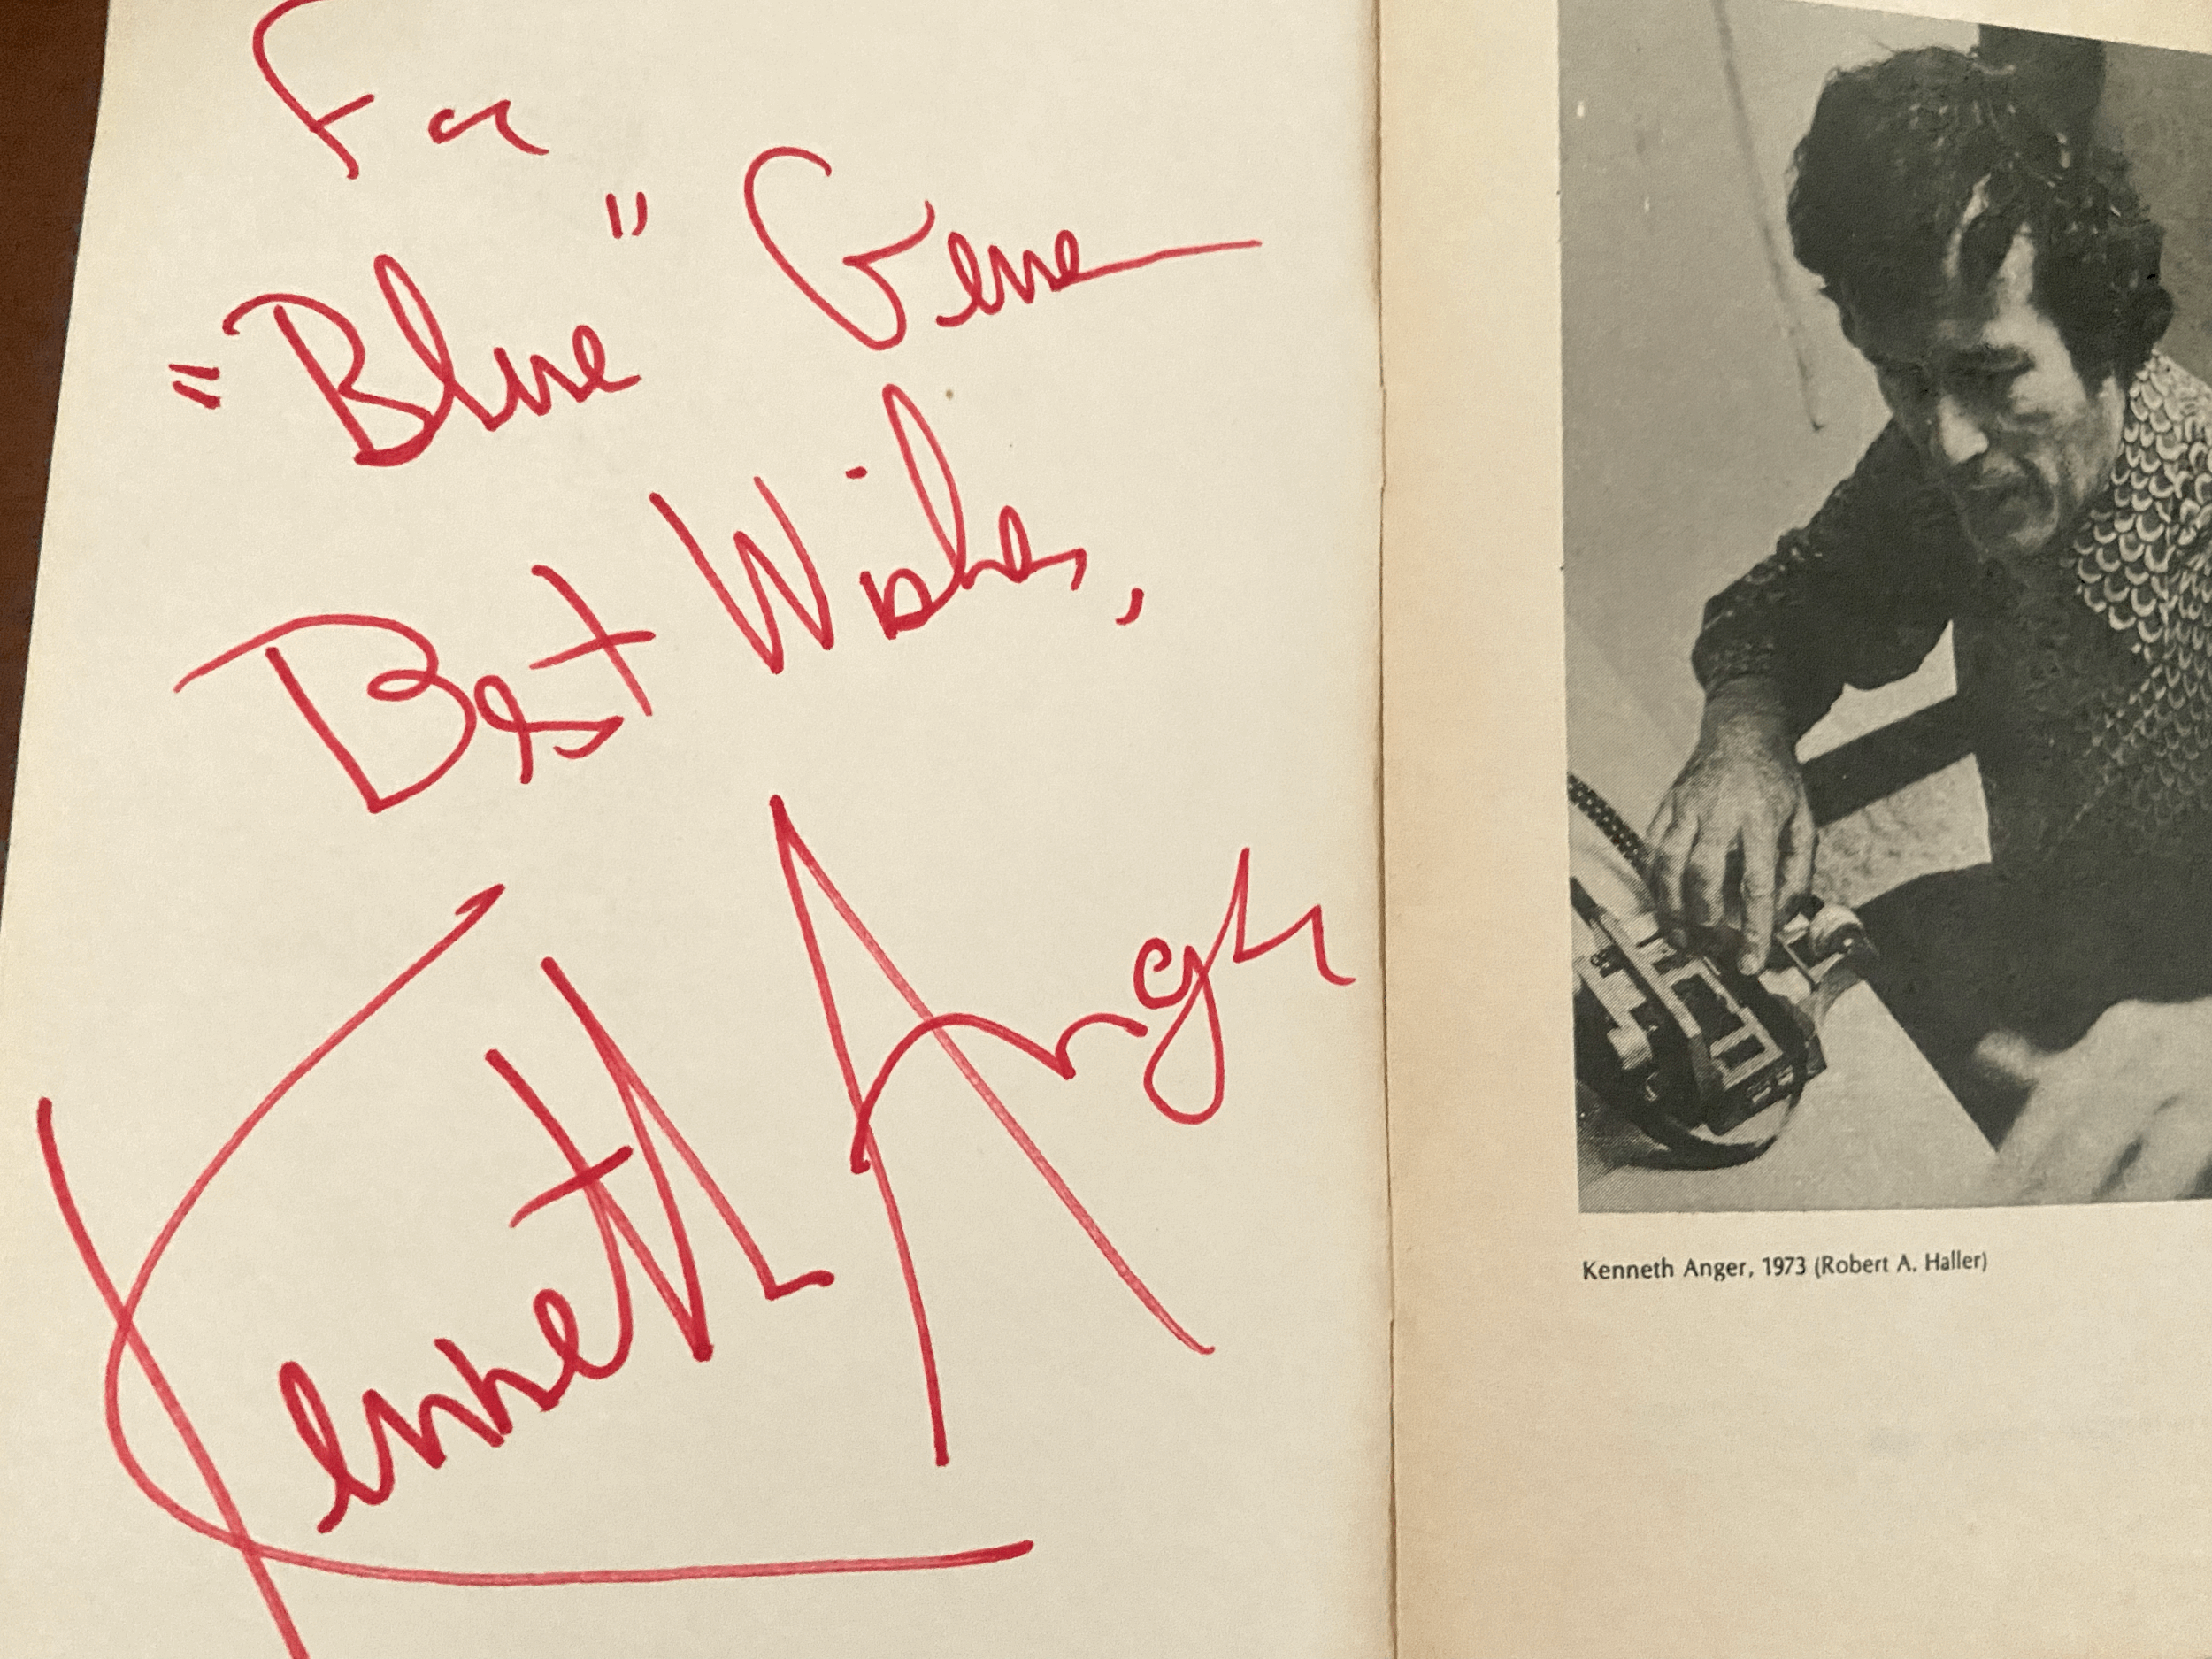 For
"Blue" Gene
Best Wishes,
Kenneth Anger
Kenneth Anger, 1973 (Robert A. Haller)